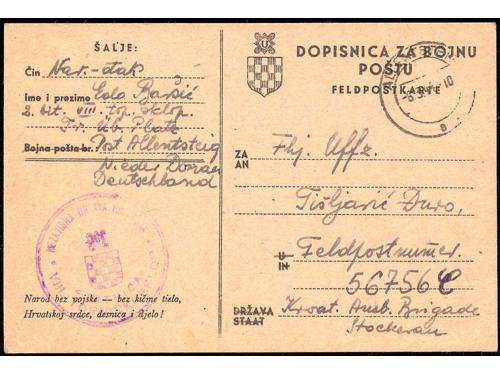 ŠALJE:
Čin Nar.-đak
Ime i prezime Edo Baršić
2. bit. VIII. top. sklop.
Tr. Üb. Platz
Bojna pošta br. Post Allentsteig
Nieder Donau
Deutschland
Narod bez vojske — bez kičme tijelo,
Hrvatskoj srdce, desnica i djelo!
U
DOPISNICA ZA BOJNU
POŠTU
FELDPOSTKARTE
ZA
AN
Fhj. Uffz.
Tišljarić Đuro,
U
IN
Feldpostnummer
56756 C
DRŽAVA
STAAT
Kroat. Ausb. Brigade
Stockerau